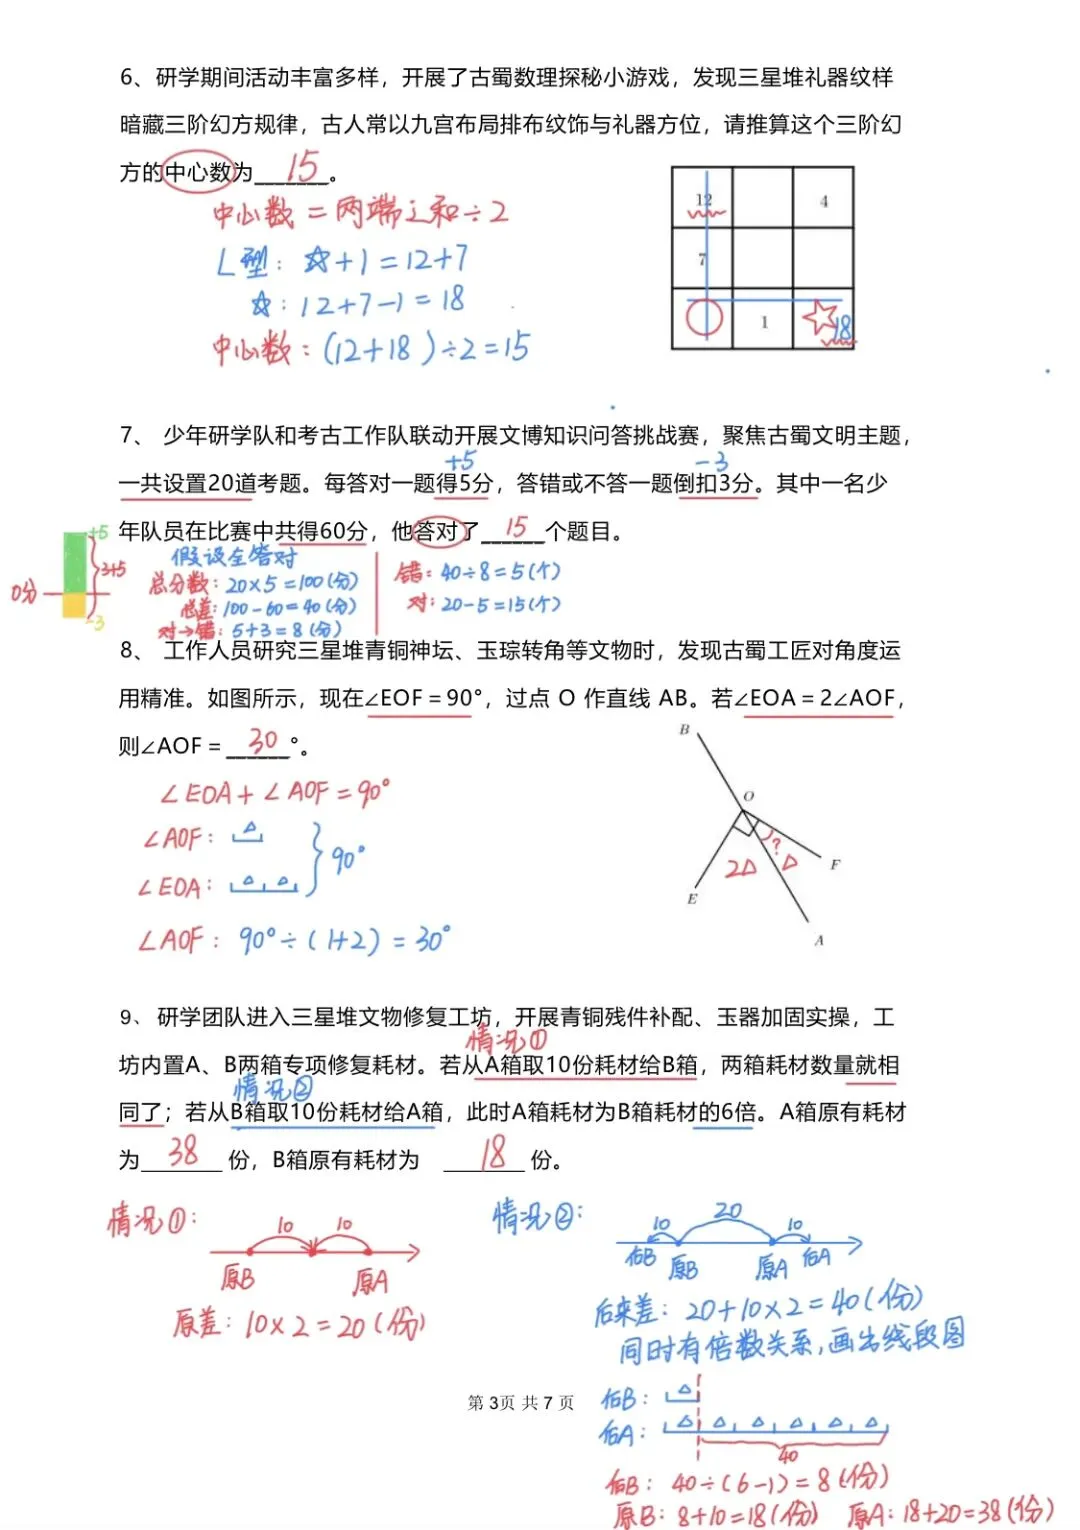 6、研学期间活动丰富多样，开展了古蜀数理探秘小游戏，发现三星堆礼器纹样
暗藏三阶幻方规律，古人常以九宫布局排布纹饰与礼器方位，请推算这个三阶幻
方的中心数为 15 。
中心数=两端之和÷2
L型：☆+1=12+7
☆：12+7-1=18
中心数：(12+18)÷2=15
12 4
7
1 18
7、 少年研学队和考古工作队联动开展文博知识问答挑战赛，聚焦古蜀文明主题，
+5 -3
一共设置20道考题。每答对一题得5分，答错或不答一题倒扣3分。其中一名少
年队员在比赛中共得60分，他答对了 15 个题目。
+5
3+5
0分
-3
假设全答对
总分数：20×5=100(分)
总差：100-60=40(分)
对→错：5+3=8(分)
错：40÷8=5(个)
对：20-5=15(个)
8、 工作人员研究三星堆青铜神坛、玉琮转角等文物时，发现古蜀工匠对角度运
用精准。如图所示，现在∠EOF=90°，过点 O 作直线 AB。若∠EOA=2∠AOF，
则∠AOF= 30 °。
∠EOA+∠AOF=90°
∠AOF： △
90°
∠EOA： △ △
∠AOF：90°÷(1+2)=30°
B
O
?
2△ △
F
E
A
9、研学团队进入三星堆文物修复工坊，开展青铜残件补配、玉器加固实操，工
情况①
坊内置A、B两箱专项修复耗材。若从A箱取10份耗材给B箱，两箱耗材数量就相
情况②
同了；若从B箱取10份耗材给A箱，此时A箱耗材为B箱耗材的6倍。A箱原有耗材
为 38 份，B箱原有耗材为 18 份。
情况①：
10 10
原B 原A
原差：10×2=20(份)
情况②：
10 20 10
后B 原B 原A 后A
后来差：20+10×2=40(份)
同时有倍数关系，画出线段图
后B： △
后A： △ △ △ △ △ △
40
后B：40÷(6-1)=8(份)
原B：8+10=18(份) 原A：18+20=38(份)
第 3页 共 7 页